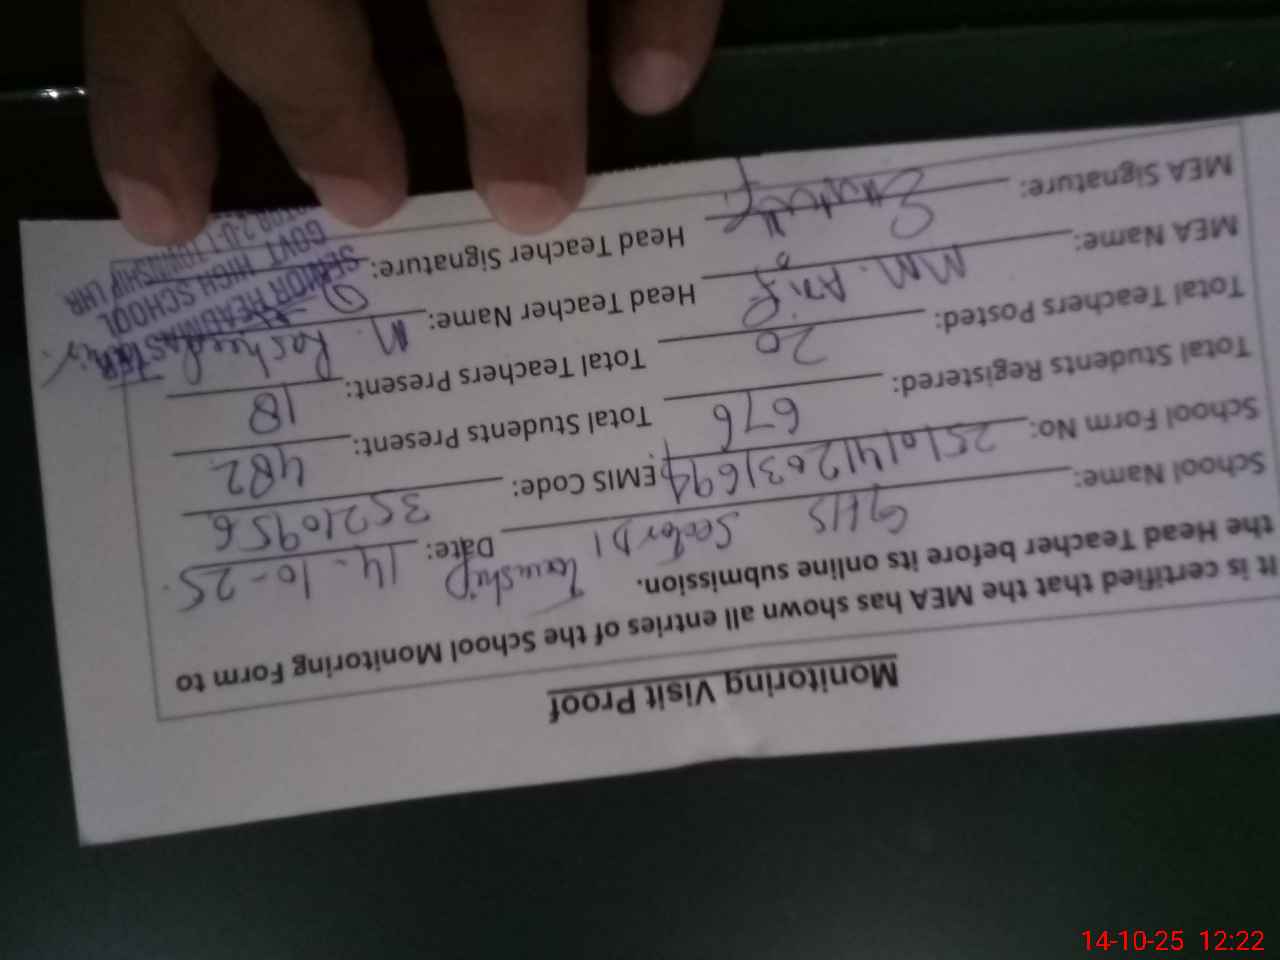 Monitoring Visit Proof
It is certified that the MEA has shown all entries of the School Monitoring Form to
the Head Teacher before its online submission.
School Name: GHS Sector D1 Township Date: 14-10-25
School Form No: EMIS Code: 35210956
Total Students Registered: 676 Total Students Present: 482
Total Teachers Posted: 20 Total Teachers Present: 18
MEA Name: MM. Arif Head Teacher Name: M. Rasheed
MEA Signature: Head Teacher Signature:
SENIOR HEADMASTER
GOVT HIGH SCHOOL
TOWNSHIP LHR
14-10-25 12:22